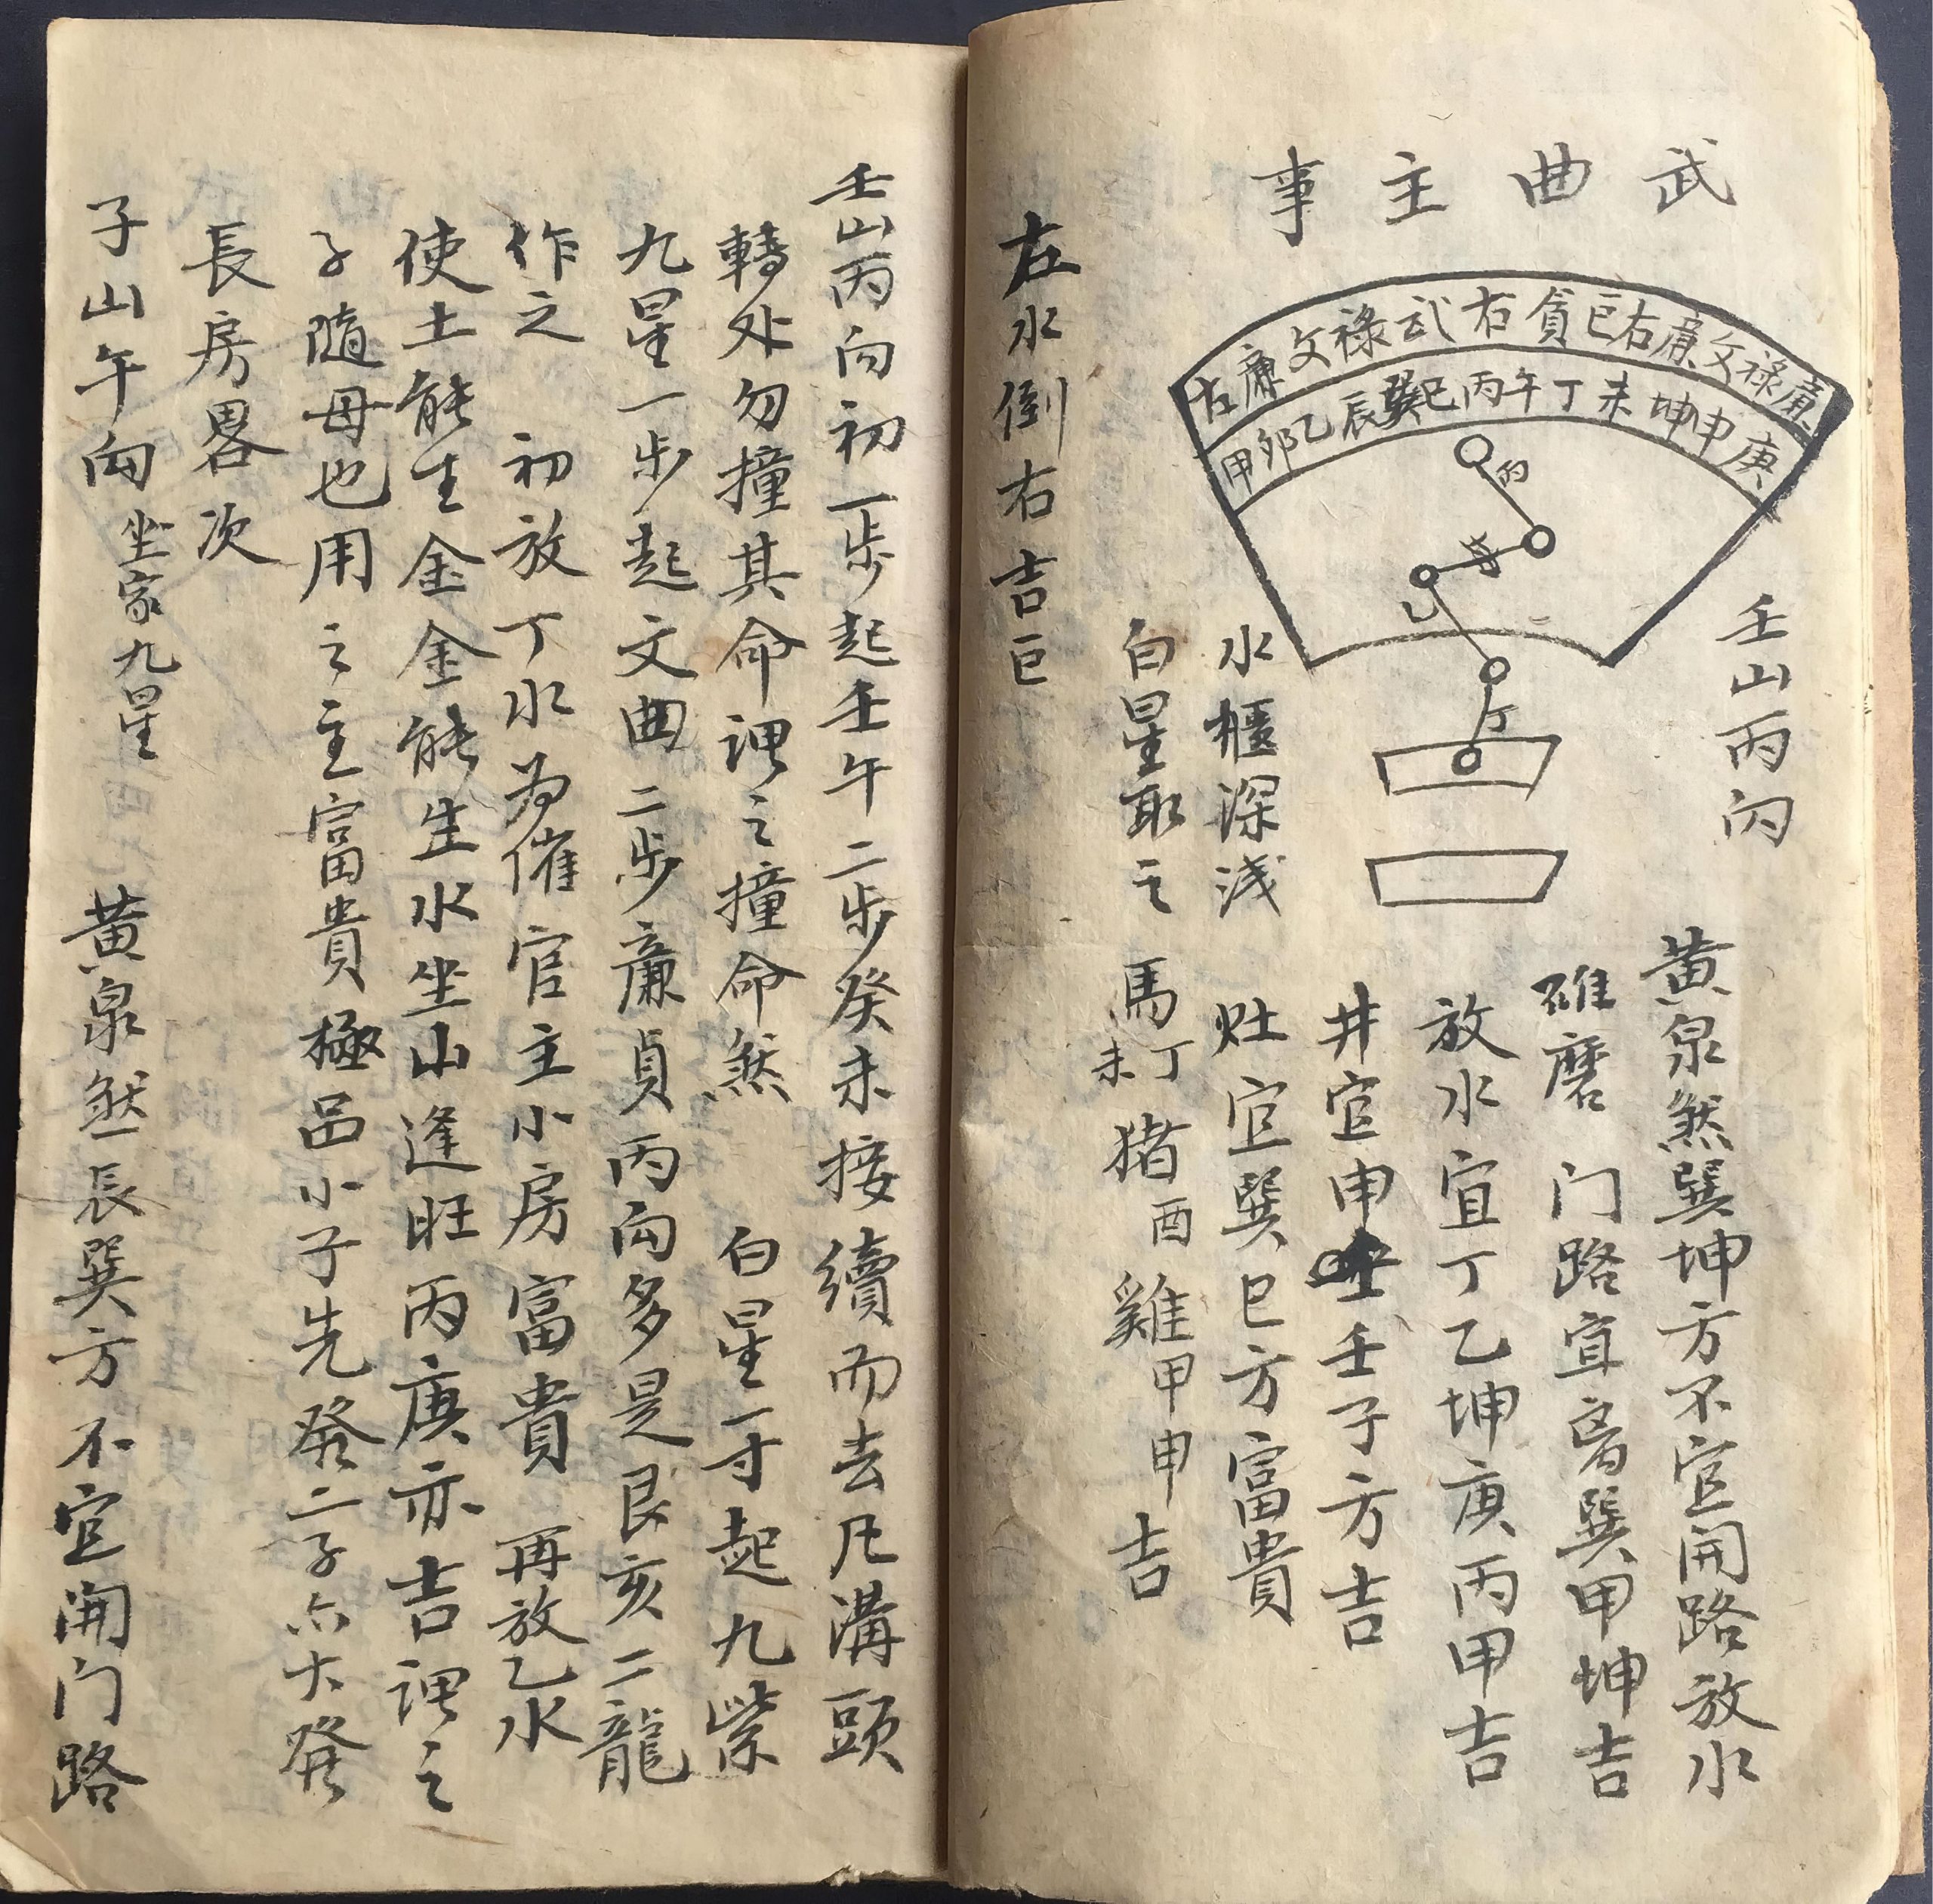 武曲主事
右廉文祿武右貪巨右廉文祿廉
甲卯乙辰巽巳丙午丁未坤申庚
丙
乙
丁
壬山丙向
黃泉煞巽坤方不宜開路放水
碓磨門路宜离巽甲坤吉
放水宜丁乙坤庚丙甲吉
井宜申壬子方吉
灶宜巽巳方富貴
水櫃深浅
白星取之
馬丁未猪酉雞甲申吉
左水倒右吉巨
壬山丙向初一步起壬午二步癸未接續而去凡溝頭
轉处勿撞其命谓之撞命煞 白星一寸起九紫
九星一步起文曲二步廉貞丙向多是艮亥二龍
作之 初放丁水为催官主小房富貴 再放乙水
使土能生金金能生水坐山逢旺丙庚亦吉谓之
子隨母也用之主富貴極品小子先發二子亦大發
長房畧次
子山午向坐家九星 黃泉煞長巽方不宜開门路